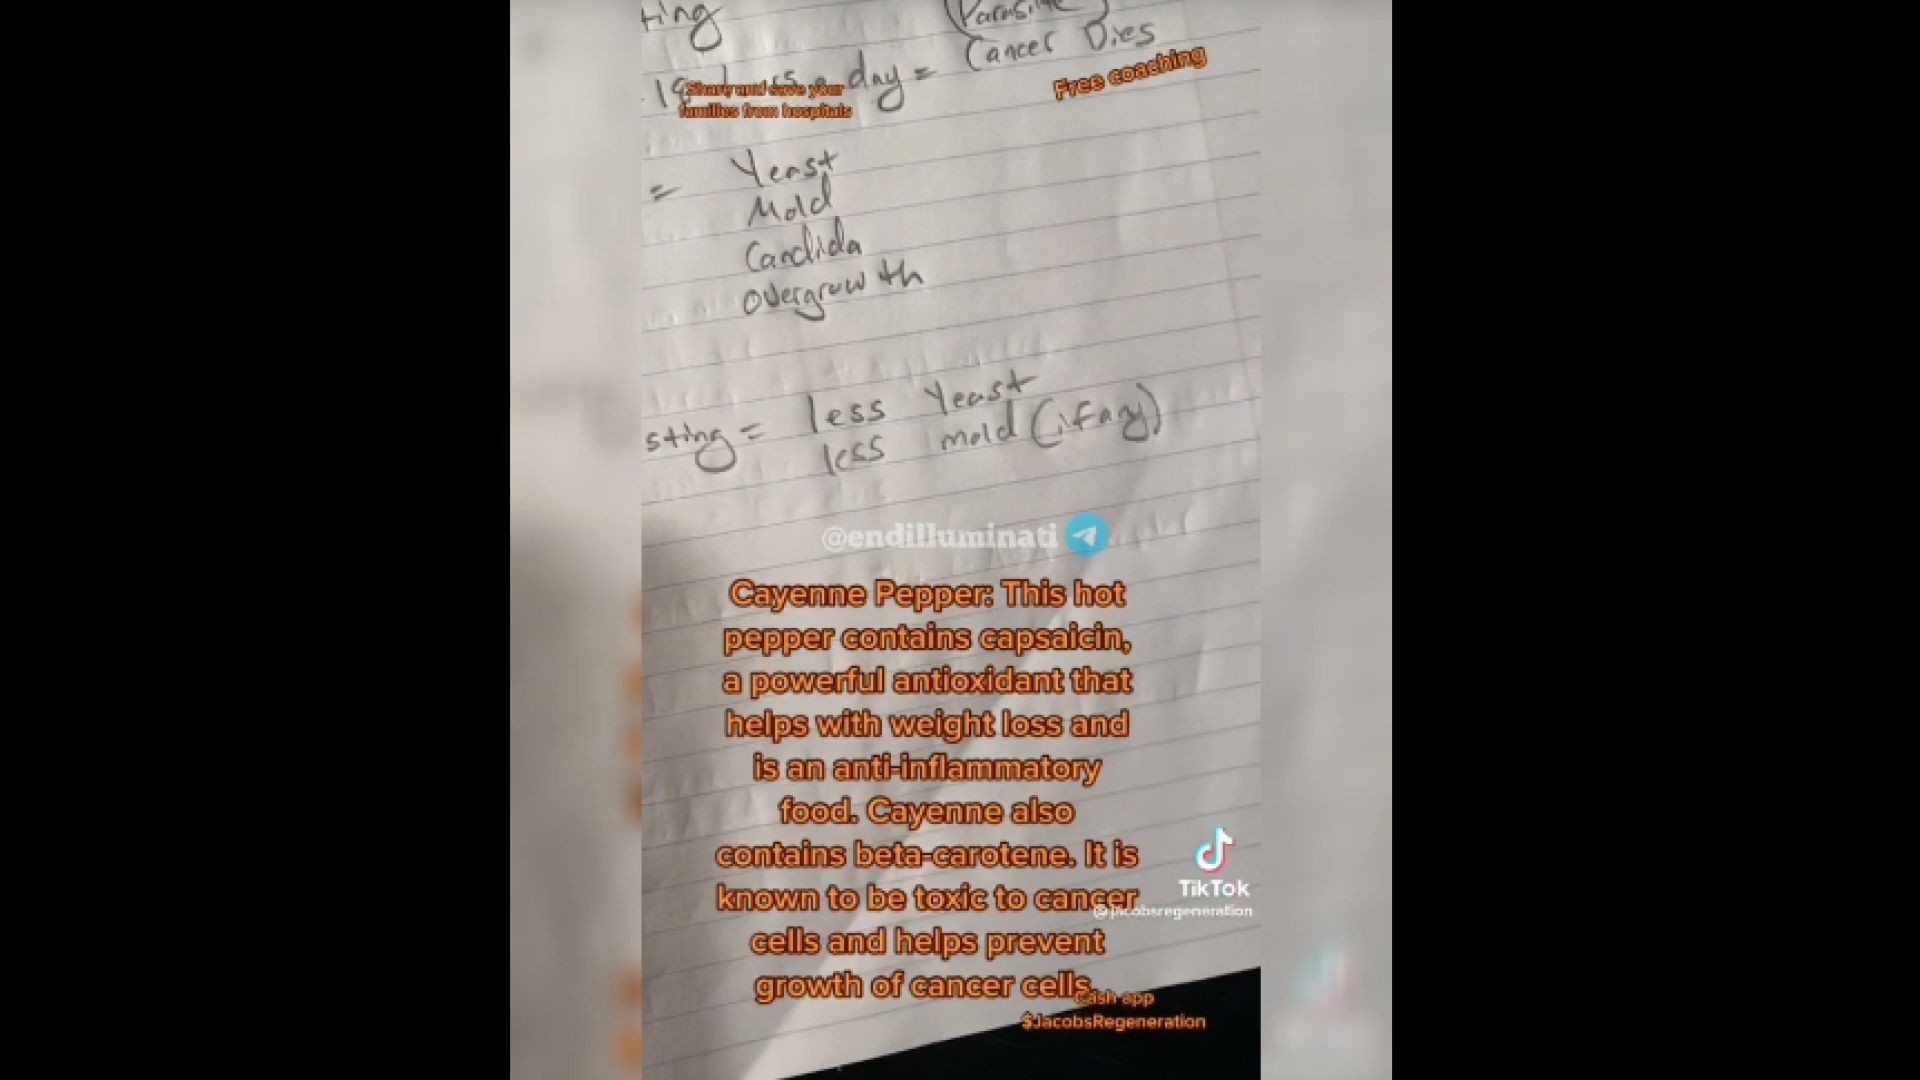 ting
(Parasite)
Cancer Dies
18 hours a day =
Free coaching
Share and save your
families from hospitals
= Yeast
Mold
Candida
overgrowth
sting = less Yeast
less mold (if any)
@endilluminati
Cayenne Pepper: This hot
pepper contains capsaicin,
a powerful antioxidant that
helps with weight loss and
is an anti-inflammatory
food. Cayenne also
contains beta-carotene. It is
known to be toxic to cancer
cells and helps prevent
growth of cancer cells.
TikTok
@jacobsregeneration
Cash app
$JacobsRegeneration